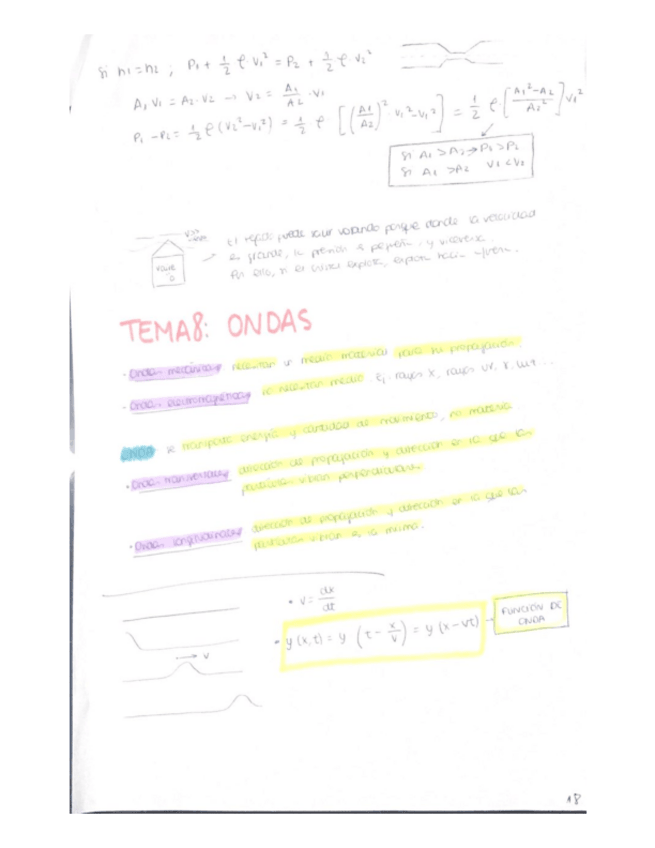 Si h1=h2 ; P1 + 1/2 ρ v1² = P2 + 1/2 ρ v2²
A1 V1 = A2·V2 → V2 = A1/A2 · V1
P1 - P2 = 1/2 ρ (V2² - V1²) = 1/2 ρ · [(A1/A2)² · V1² - V1²] = 1/2 ρ · [A1² - A2/A2²] V1²
Si A1 > A2 → P1 > P2
Si A1 > A2 V1 < V2
V>>
El tejado puede salir volando porque donde la velocidad
es grande, la presión es pequeña, y viceversa.
Por ello, si el cristal explota, explota hacia afuera.
TEMA8: ONDAS
· Ondas mecánicas necesitan un medio material para su propagación.
· Ondas electromagnéticas no necesitan medio. Ej. rayos X, rayos UV, luz...
ONDA se transporta energía y cantidad de movimiento, no materia.
· Ondas transversales dirección de propagación y dirección en la que las
partículas vibran perpendiculares.
· Ondas longitudinales dirección de propagación y dirección en la que las
partículas vibran es la misma.
• v = dx/dt
→ v
• y (x,t) = y (t - x/v) = y (x - vt) → FUNCIÓN DE
ONDA
18